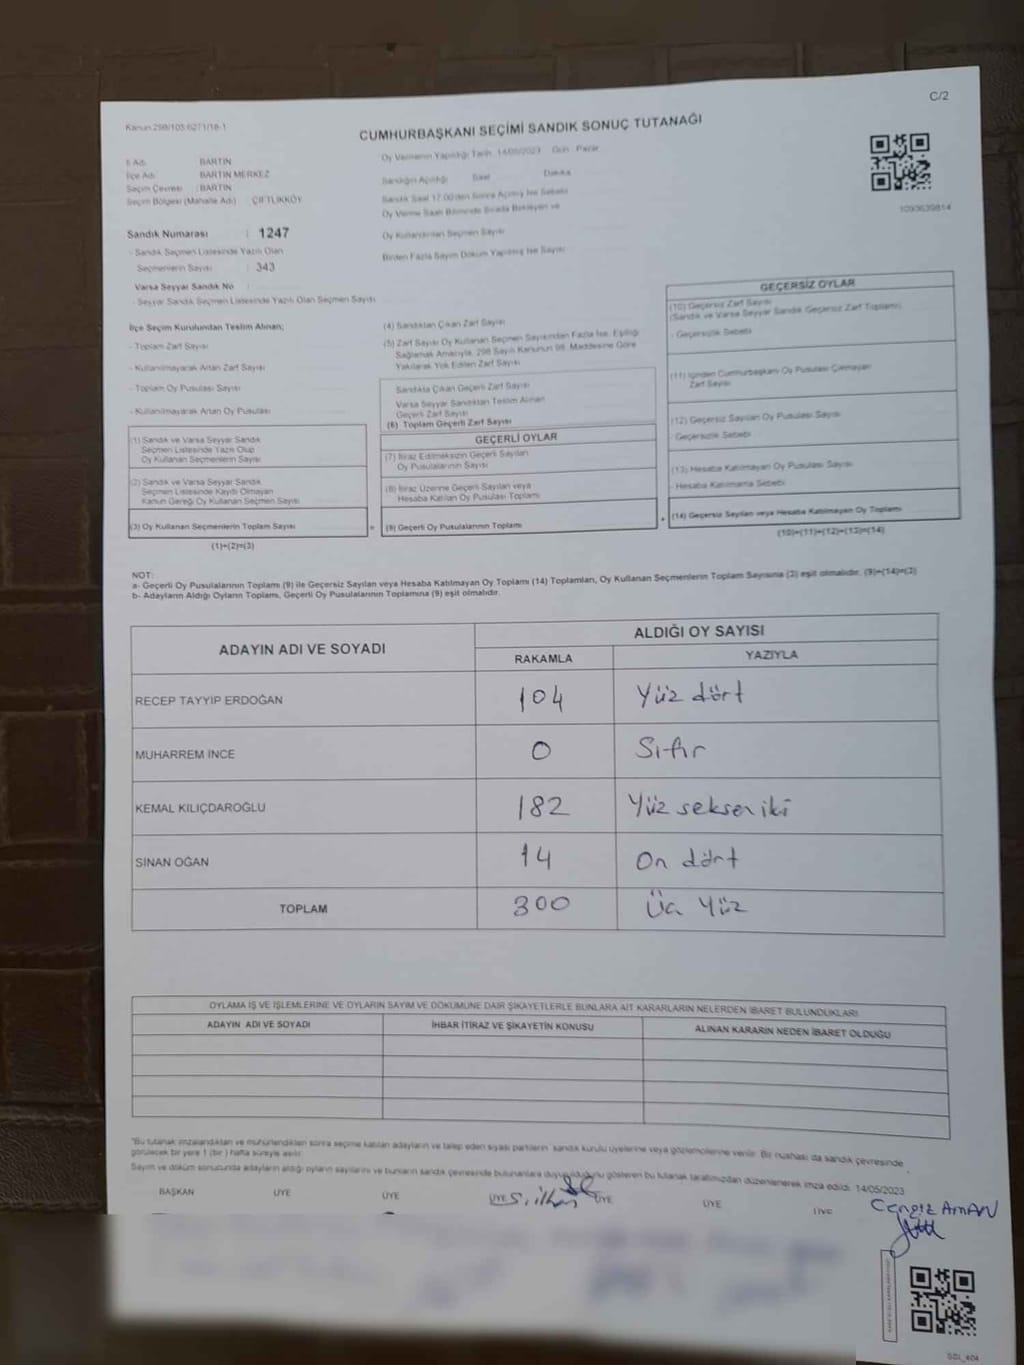 C/2
Kanun 298/105 6271/18-1
CUMHURBAŞKANI SEÇİMİ SANDIK SONUÇ TUTANAĞI
İl Adı : BARTIN
İlçe Adı : BARTIN MERKEZ
Seçim Çevresi : BARTIN
Seçim Bölgesi (Mahalle Adı) : ÇİFTLİKKÖY
Sandık Numarası : 1247
- Sandık Seçmen Listesinde Yazılı Olan
Seçmenlerin Sayısı : 343
Varsa Seyyar Sandık No :
- Seyyar Sandık Seçmen Listesinde Yazılı Olan Seçmen Sayısı
Oy Vermenin Yapıldığı Tarih: 14/05/2023 Gün : Pazar
Sandığın Açıldığı Saat Dakika
Sandık Saat 17.00'den Sonra Açılmış İse Sebebi
Oy Verme Saati Bitiminde Sırada Bekleyen ve
Oy Kullandırılan Seçmen Sayısı
Birden Fazla Sayım Döküm Yapılmış İse Sayısı
1093639814
İlçe Seçim Kurulundan Teslim Alınan;
- Toplam Zarf Sayısı
- Kullanılmayarak Artan Zarf Sayısı
- Toplam Oy Pusulası Sayısı
- Kullanılmayarak Artan Oy Pusulası
(1) Sandık ve Varsa Seyyar Sandık
Seçmen Listesinde Yazılı Olup
Oy Kullanan Seçmenlerin Sayısı
(2) Sandık ve Varsa Seyyar Sandık
Seçmen Listesinde Kaydı Olmayan
Kanun Gereği Oy Kullanan Seçmen Sayısı
(3) Oy Kullanan Seçmenlerin Toplam Sayısı
(1)+(2)=(3)
(4) Sandıktan Çıkan Zarf Sayısı
(5) Zarf Sayısı Oy Kullanan Seçmen Sayısından Fazla İse, Eşitliği
Sağlamak Amacıyla, 298 Sayılı Kanunun 98. Maddesine Göre
Yakılarak Yok Edilen Zarf Sayısı
Sandıkta Çıkan Geçerli Zarf Sayısı
Varsa Seyyar Sandıktan Teslim Alınan
Geçerli Zarf Sayısı
(6) Toplam Geçerli Zarf Sayısı
GEÇERLİ OYLAR
(7) İtiraz Edilmeksizin Geçerli Sayılan
Oy Pusulalarının Sayısı
(8) İtiraz Üzerine Geçerli Sayılan veya
Hesaba Katılan Oy Pusulası Toplamı
(9) Geçerli Oy Pusulalarının Toplamı
GEÇERSİZ OYLAR
(10) Geçersiz Zarf Sayısı
(Sandık ve Varsa Seyyar Sandık Geçersiz Zarf Toplamı)
- Geçersizlik Sebebi
(11) İçinden Cumhurbaşkanı Oy Pusulası Çıkmayan
Zarf Sayısı
(12) Geçersiz Sayılan Oy Pusulası Sayısı
Geçersizlik Sebebi
(13) Hesaba Katılmayan Oy Pusulası Sayısı
- Hesaba Katılmama Sebebi
(14) Geçersiz Sayılan veya Hesaba Katılmayan Oy Toplamı
(10)+(11)+(12)+(13)=(14)
NOT:
a- Geçerli Oy Pusulalarının Toplamı (9) ile Geçersiz Sayılan veya Hesaba Katılmayan Oy Toplamı (14) Toplamları, Oy Kullanan Seçmenlerin Toplam Sayısına (3) eşit olmalıdır. (9)+(14)=(3)
b- Adayların Aldığı Oyların Toplamı, Geçerli Oy Pusulalarının Toplamına (9) eşit olmalıdır.
ADAYIN ADI VE SOYADI
ALDIĞI OY SAYISI
RAKAMLA YAZIYLA
RECEP TAYYİP ERDOĞAN 104 Yüz dört
MUHARREM İNCE 0 Sıfır
KEMAL KILIÇDAROĞLU 182 Yüz seksen iki
SİNAN OĞAN 14 On dört
TOPLAM 300 Üç Yüz
OYLAMA İŞ VE İŞLEMLERİNE VE OYLARIN SAYIM VE DÖKÜMÜNE DAİR ŞİKAYETLERLE BUNLARA AİT KARARLARIN NELERDEN İBARET BULUNDUKLARI
ADAYIN ADI VE SOYADI İHBAR İTİRAZ VE ŞİKAYETİN KONUSU ALINAN KARARIN NEDEN İBARET OLDUĞU
"Bu tutanak imzalandıktan ve mühürlendikten sonra seçime katılan adayların ve talep eden siyasi partilerin sandık kurulu üyelerine veya gözlemcilerine verilir. Bir nüshası da sandık çevresinde
görülecek bir yere 1 (bir) hafta süreyle asılır.
Sayım ve döküm sonucunda adayların aldığı oyların sayılarını ve bunların sandık çevresinde bulunanlara duyurulduğunu gösteren bu tutanak tarafımızdan düzenlenerek imza edildi. 14/05/2023
BAŞKAN ÜYE ÜYE ÜYE ÜYE ÜYE ÜYE
S. ilhan
Cengiz AMAN